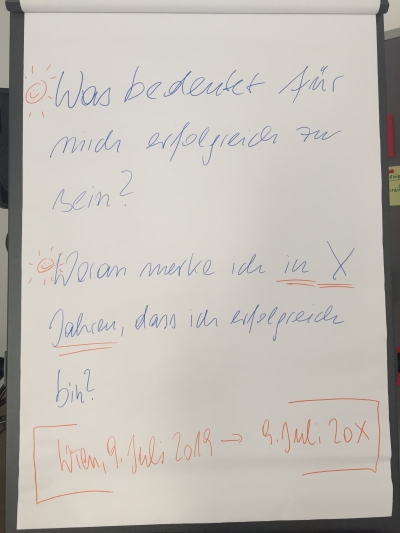 Was bedeutet für
mich erfolgreich zu
sein?
Woran merke ich in X
Jahren, dass ich erfolgreich
bin?
Wien, 9. Juli 2019 → 9. Juli 20X